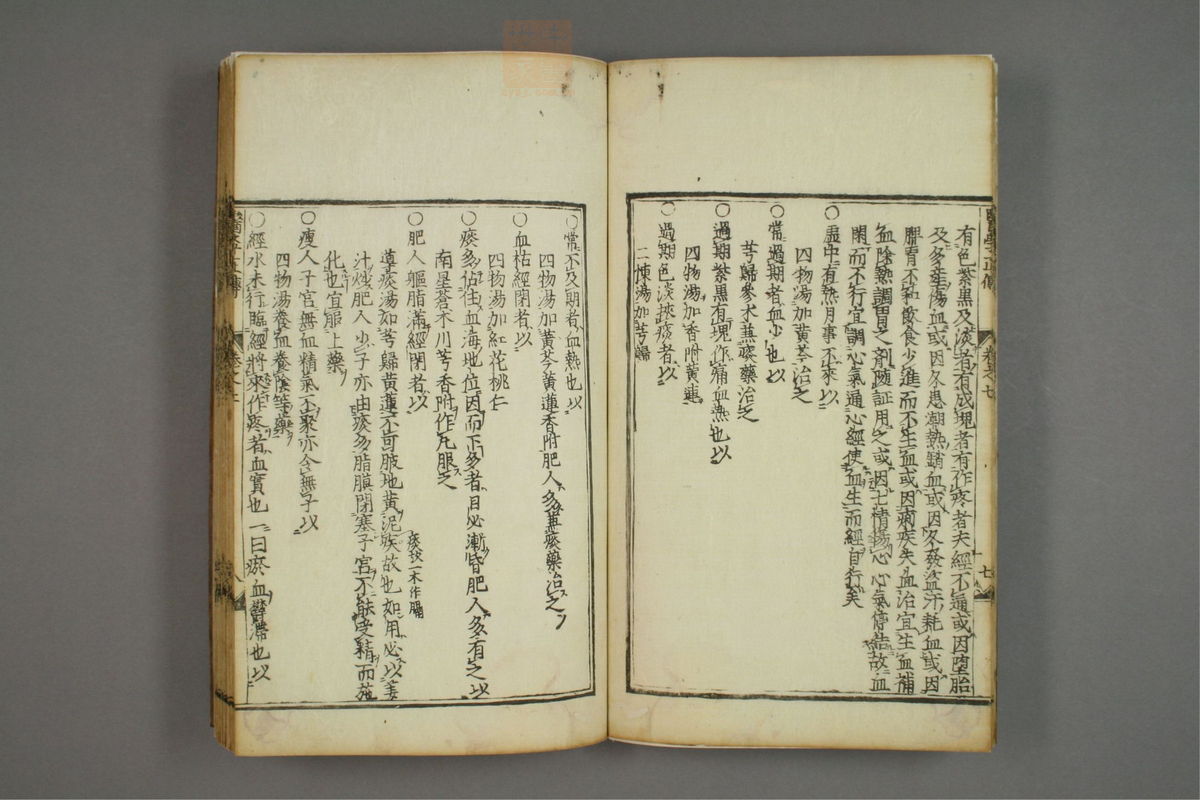 醫學正傳
卷之七
七
有色紫黒及淡者有成塊者有作疼者夫經不通或因堕胎
及多産傷血或因久患潮熱銷血或因久發盗汗耗血或因
脾胃不和飲食少進而不生血或因痢疾失血治宜生血補
血除熱調胃之剤随証用之或因七情傷心心氣停結故血
閉而不行宜調心氣通心經使血生而經自行矣
○虚中有熱月事不來以
四物湯加黄芩治之
○常過期者血少也以
芎歸參朮兼痰藥治之
○過期紫黒有塊作痛血熱也以
四物湯加香附黄蓮
○過期色淡挾痰者以
二陳湯加芎歸
○常不及期者血熱也以
四物湯加黄芩黄蓮香附肥人多兼痰藥治之
○血枯經閉者以
四物湯加紅花桃仁
○痰多佔住血海地位因而下多者目必漸昏肥人多有之以
南星蒼朮川芎香附作丸服之
○肥人軀脂滿經閉者以
導痰湯加芎歸黄蓮不可服地黄泥痰故也如用必以姜
痰校一本作膈
汁炒肥人少子亦由痰多脂膜閉塞子宮不能受精而施
化也宜服上藥
○瘦人子宮無血精氣不聚亦令無子以
四物湯養血養陰等藥
○經水未行臨經將來作疼者血實也一曰瘀血欝滯也以
醫學正傳
卷之七